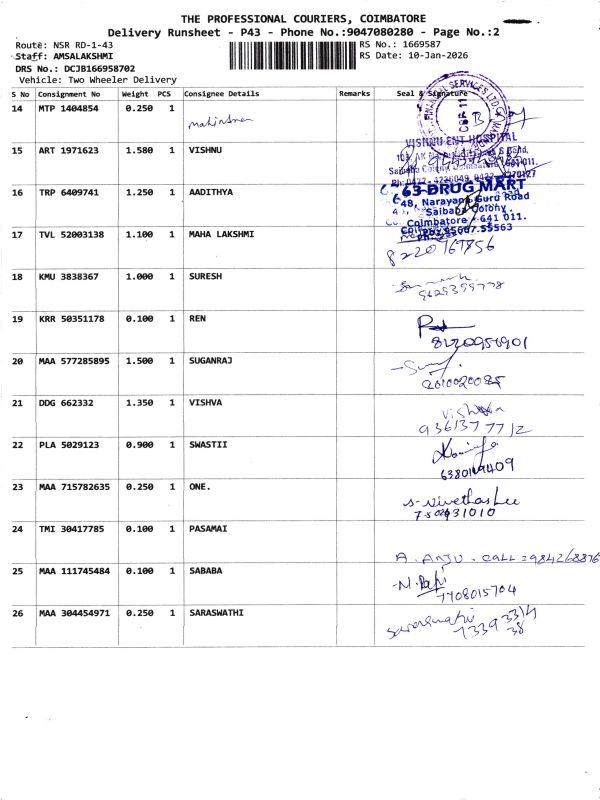 THE PROFESSIONAL COURIERS, COIMBATORE
Delivery Runsheet - P43 - Phone No.:9047080280 - Page No.:2
Route: NSR RD-1-43
RS No.: 1669587
Staff: AMSALAKSHMI
RS Date: 10-Jan-2026
DRS No.: DCJB166958702
Vehicle: Two Wheeler Delivery
S No Consignment No Weight PCS Consignee Details Remarks Seal & Signature
14 MTP 1404854 0.250 1
FINANCIAL SERVICES LTD
CBR 11
VISHNU ENT HOSPITAL
15 ART 1971623 1.580 1 VISHNU
16 TRP 6409741 1.250 1 AADITHYA
63 DRUG MART
48, Narayana Guru Road
Saibaba Colony,
Coimbatore - 641 011.
17 TVL 52003138 1.100 1 MAHA LAKSHMI
8220767856
18 KMU 3838367 1.000 1 SURESH
9629399778
19 KRR 50351178 0.100 1 REN
8220950901
20 MAA 577285895 1.500 1 SUGANRAJ
21 DDG 662332 1.350 1 VISHVA
Vishva
9361377712
22 PLA 5029123 0.900 1 SWASTII
23 MAA 715782635 0.250 1 ONE.
24 TMI 30417785 0.100 1 PASAMAI
A. ANJU. CALL = 984268876
25 MAA 111745484 0.100 1 SABABA
7708015704
26 MAA 304454971 0.250 1 SARASWATHI
73393314
38